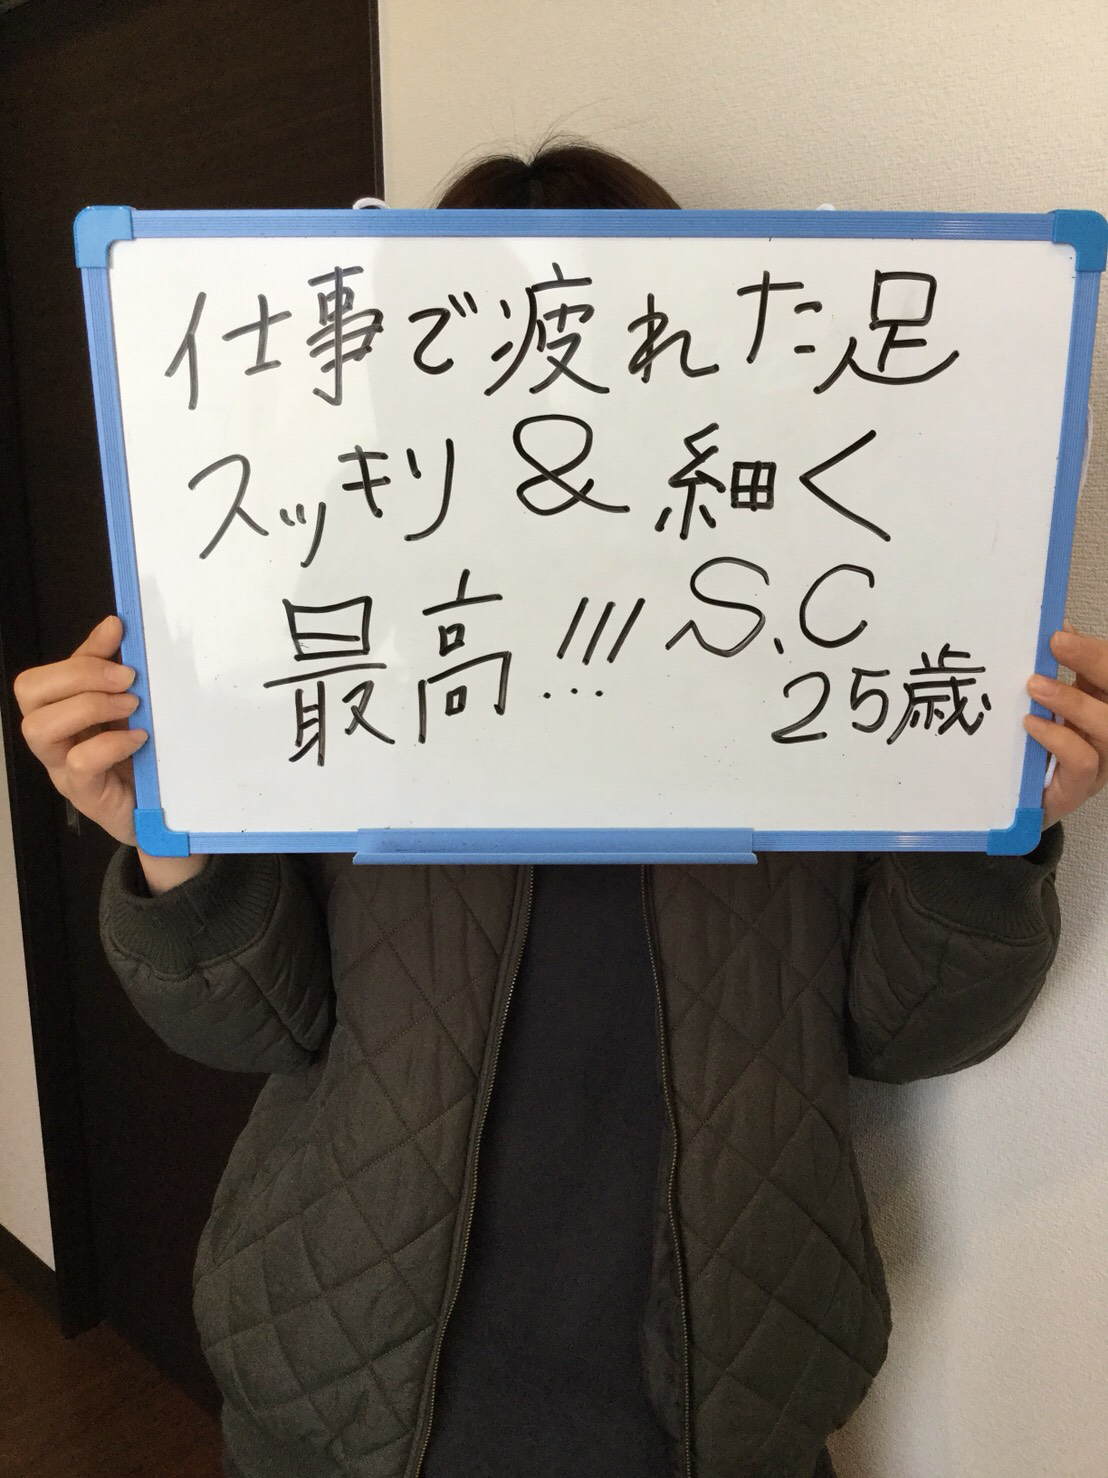 仕事で疲れた足
スッキリ & 細く
最高!!! S.C
25歳